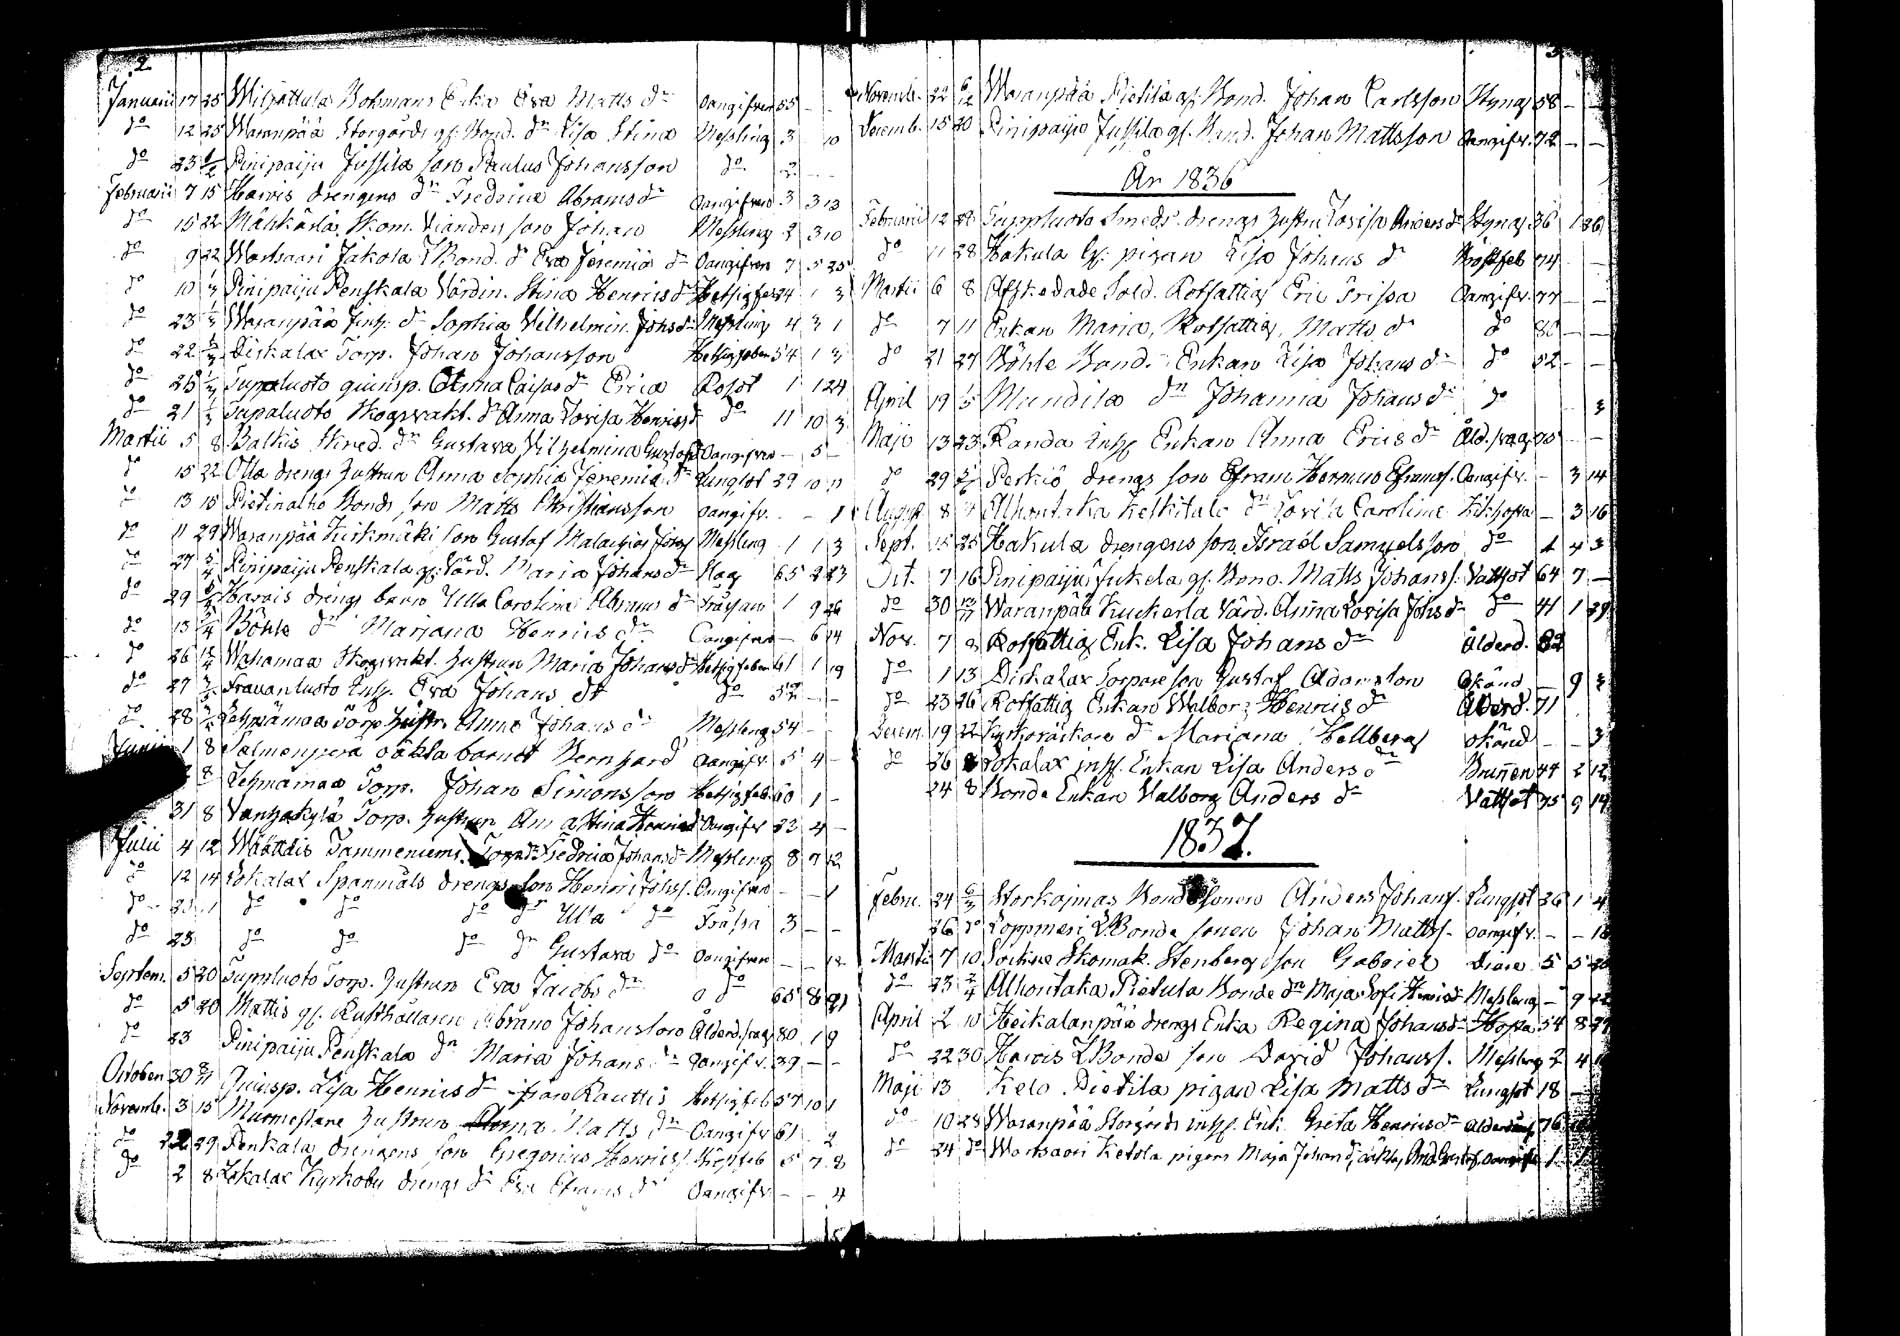 2
Januarii 17 25 Wiljattula Bohmans Enka Eva Matts dr Oangifven 55 - -
do 12 25 Waranpää Storgårds gl. Bond. dr Lisa Stina Messling 3 - 10
do 23 1/2 Pinipaiju Jussila son Paulus Johansson do 2 - -
Februarii 7 15 Harvis drengens dr Fredrica Abrams dr Oangifven 3 3 13
do 15 22 Skom. son Johan Messling 2 3 10
do 9 22 Wartsaari Jakola Bond. dr Eva Jeremiæ dr Oangifven 7 5 25
do 10 1/3 Pinipaiju Penskala Värdin. Stina Henrics dr Hetsigfeb 24 1 3
do 23 1/3 Waranpää Inh. dr Sophia Vilhelmin. Johs dr Messling 4 3 1
do 22 Diskalax Torp. Johan Johansson Hetsigfeber 54 1 3
do 25 Tuppluoto qvinsp. Anna Caisas dr Erica Rosot 1 1 24
do 21 Tupaluoto Skogvakt. dr Anna Lovisa Henrics dr do 11 10 3
Martii 5 8 Balkis Skred. dr Gustava Vilhelmina Oangifven - 5 -
do 15 22 Otta drengs hustrun Anna Sophia Jeremiæ dr Lungsot 29 10 11
do 13 15 Pietinalho Bonds son Matts Christiansson Oangifv. - - 1
do 11 29 Waranpää Kirkmäki son Gustaf Malachias Johss Messling 1 1 3
do 27 Pinipaiju Penskala gl. Värd. Maria Johans dr Slag 65 2 23
do 29 Harvis drengs barn Ulla Carolina Abrams dr Tråsjan 1 9 26
do 13 Böhle dr Mariana Henrics dr Oangifven - 6 14
do 26 Wahamaa Skogvakt. hustrun Maria Johans dr Hetsigfeber 61 1 19
do 27 Fravanluoto Inh. Eva Johans dr do 52 - -
do 28 Lehmämaa Torp. hustr. Anna Johans dr Messling 54 - -
Junii 1 8 Salmenperä oäkta barnet Bernhard Oangifv. 5 4 -
8 Lehmämaa Torp. Johan Simonsson Hetsigfeb. 60 1 -
31 8 Vanhakylä Torp. hustrun Oangifv 22 4 -
Julii 4 12 Wäättäis Tammeniemi Torp. dr Fredrica Johans dr Messling 8 7 12
do 12 14 Lokalax Spanmåls drengs son Henric Johss. Oangifven - - 1
do do do do dr Ulla do Tråsja 3 - -
do 23 do do do dr Gustava do Oangifven - - 12
Septem. 5 20 Tuppluoto Torp. hustrun Eva Jacobs dr do 65 8 21
do 5 20 Mattis gl. Rusthållaren Abram Johansson Ålderd. svag 80 1 9
do 23 Pinipaiju Penskala dr Maria Johans dr Oangifv. 39 - -
October 30 8/11 Qvinsp. Lisa Henrics dr från Rauttis Hetsigfeb 57 10 1
Novemb. 3 15 Murmestare hustrun Anna Matts dr Oangifv 61 - 2
do 22 29 Penkala drengens son Gregorius Henricss. Bröstfeb 5 7 8
do 2 8 Lokalax Kyrkoby drengs dr Eva Efraims dr Oangifv - - 4
3
Novemb. 22 6/12 Waranpää Pietilä gl. Bond. Johan Carlsson Styng 58 - -
Decemb. 15 20 Pinipaiju Jussila gl. Bond. Johan Mattsson Oangifv. 72 - -
År 1836
Februarii 12 28 Tuppluoto Smeds drengs hustru Lovisa Anders dr Styng 36 1 26
do 11 28 Hakula gl. pigan Lisa Johans dr Bröstfeb 74 - -
Martii 6 8 Afskedade Sold. Rotfattig Eric Frisa Oangifv. 77 - -
do 7 11 Enkan Maria, Rotfattig, Matts dr do 80 - -
do 21 27 Böhle Bond. Enkan Lisa Johans dr do 52 - -
April 19 1/5 Mundila dr Johanna Johans dr do - 3
Maji 13 23 Randa inhs Enkan Anna Erics dr Åld. svag 75 - -
do 29 5/6 Perkiö drengs son Efraim Herman Efraimss. Oangifv. - 3 14
August 8 Alhontaka Kelkitalo dr Lovisa Carolina Kikhosta - 3 16
Sept. 15 25 Hakula drengens son Israel Samuelsson do 1 4 3
Oct. 7 16 Pinipaiju Sukela gl. Bond. Matts Johanss. Vattsot 64 7 -
do 30 13/11 Waranpää Kuckerla Värd. Anna Lovisa Johs dr do 41 1 29
Nov. 7 8 Rotfattig Enk. Lisa Johans dr Ålderd. 82
do 1 13 Diskalax Torpare son Gustaf Adamsson Okänd - 9 3
do 23 26 Rotfattig Enkan Walborg Henrics dr Ålderd. 71
Decem. 19 22 Kyrkoväcktare dr Mariana Hellberg okänd - - 3
do 26 8 Lokalax inhs. Enkan Lisa Anders dr Brunen 44 2 12
24 8 Bonde Enkan Valborg Anders dr Vattsot 75 9 14
1837.
Febru. 24 6/3 Storkojmas Bond Sonen Anders Johanss. Lungsot 26 1 4
26 do Loppmeri Bonde sonen Johan Mattss. Oangifv. - - 18
Martii 7 10 Sockne Skomak. Stenberg son Gabriel 5 5 20
do 23 2/4 Alhontaka Pietula Bonde dr Maja Sofi Henrics dr Messling - 9 22
April 2 10 Heikalanpää drengs Enka Regina Johans dr Hosta 54 8 27
do 22 30 Harvis Bonde son David Johanss. Messling 2 4
Maji 13 Kelo Pietilä pigan Lisa Matts dr Lungsot 18 -
do 10 28 Waranpää Storgårds inhs. Enk. Greta Henrics dr Ålderdoms 76
do 24 do Wartsaari Ketola pigans Maja Johans dr oäkta Oangifv 1 1